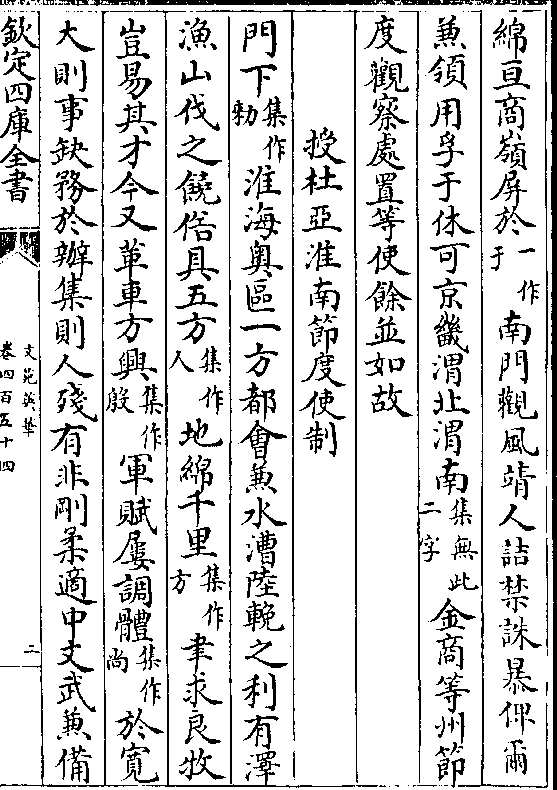 綿亘商嶺屏於一作于南門觀風靖人詰禁誅暴俾爾
兼領用孚于休可京畿渭北渭南集無此二字金商等州節
度觀察處置等使餘並如故
授杜亞淮南節度使制
門下集作勑淮海奧區一方都會兼水漕陸輓之利有澤
漁山伐之饒俗具五方集作人地綿千里集作方聿求良牧
豈易其才今又革車方興集作殷軍賦屢調體集作尚於寛
大則事缺務於辦集則人殘有非剛柔適中文武兼備
欽定四庫全書
文苑英華
卷四百五十四
二